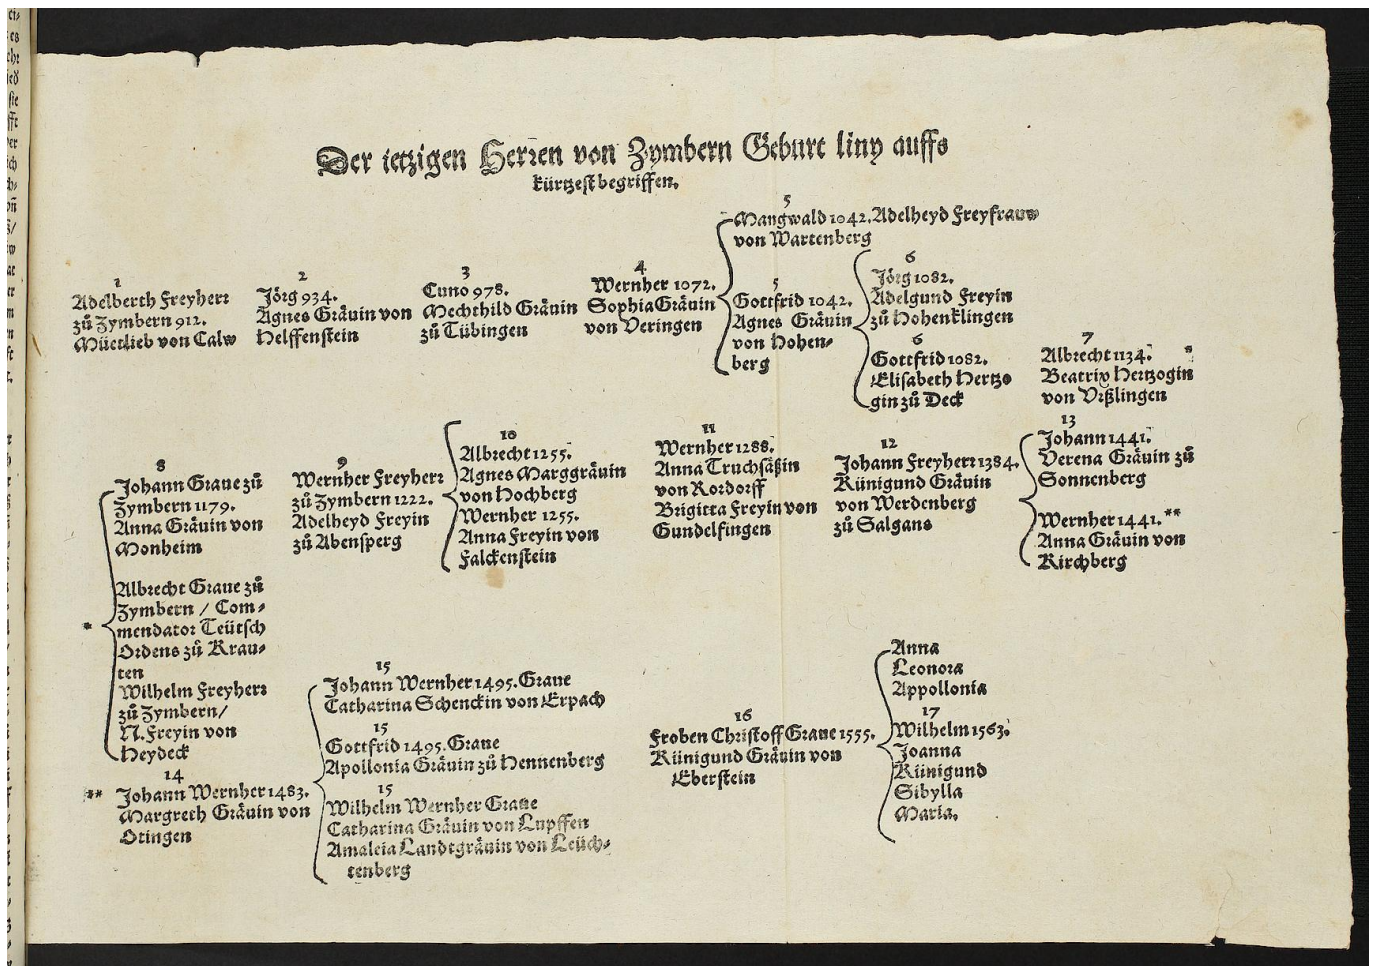 Der ietzigen Herren von Zymbern Geburt liny auffs
kürtzest begriffen.
1
Adelberth Freyherr
zů Zymbern 912.
Müetlieb von Calw
2
Jörg 934.
Agnes Grāuin von
Helffenstein
3
Cuno 978.
Mechthild Grāuin
zů Tübingen
4
Wernher 1072.
Sophia Grāuin
von Veringen
5
Mangwald 1042. Adelheyd Freyfrauw
von Wartenberg
5
Gottfrid 1042.
Agnes Grāuin
von Hohen-
berg
6
Jörg 1082.
Adelgund Freyin
zů Hohenklingen
6
Gottfrid 1082.
Elisabeth Hertzo
gin zů Deck
7
Albrecht 1134. *
Beatrix Hertzogin
von Vrßlingen
*
8
Johann Graue zů
Zymbern 1179.
Anna Grāuin von
Monheim
Albrecht Graue zů
Zymbern / Com-
mendator Teütsch
Ordens zů Krau-
ten
Wilhelm Freyherr
zů Zymbern/
N. Freyin von
Heydeck
9
Wernher Freyherr
zů Zymbern 1222.
Adelheyd Freyin
zů Abensperg
10
Albrecht 1255.
Agnes Marggrāuin
von Hochberg
Wernher 1255.
Anna Freyin von
Falckenstein
11
Wernher 1288.
Anna Truchsāßin
von Rordorff
Brigitta Freyin von
Gundelfingen
12
Johann Freyherr 1384.
Künigund Grāuin
von Werdenberg
zů Salgans
13
Johann 1441.
Verena Grāuin zů
Sonnenberg
Wernher 1441. **
Anna Grāuin von
Kirchberg
14
** Johann Wernher 1483.
Margreth Grāuin von
Otingen
15
Johann Wernher 1495. Graue
Catharina Schenckin von Erpach
15
Gottfrid 1495. Graue
Apollonia Grāuin zů Hennenberg
15
Wilhelm Wernher Graue
Catharina Grāuin von Lupffen
Amaleia Landtgrāuin von Leüch-
tenberg
16
Froben Christoff Graue 1555.
Künigund Grāuin von
Eberstein
Anna
Leonora
Appollonia
17
Wilhelm 1563.
Joanna
Künigund
Sibylla
Maria.